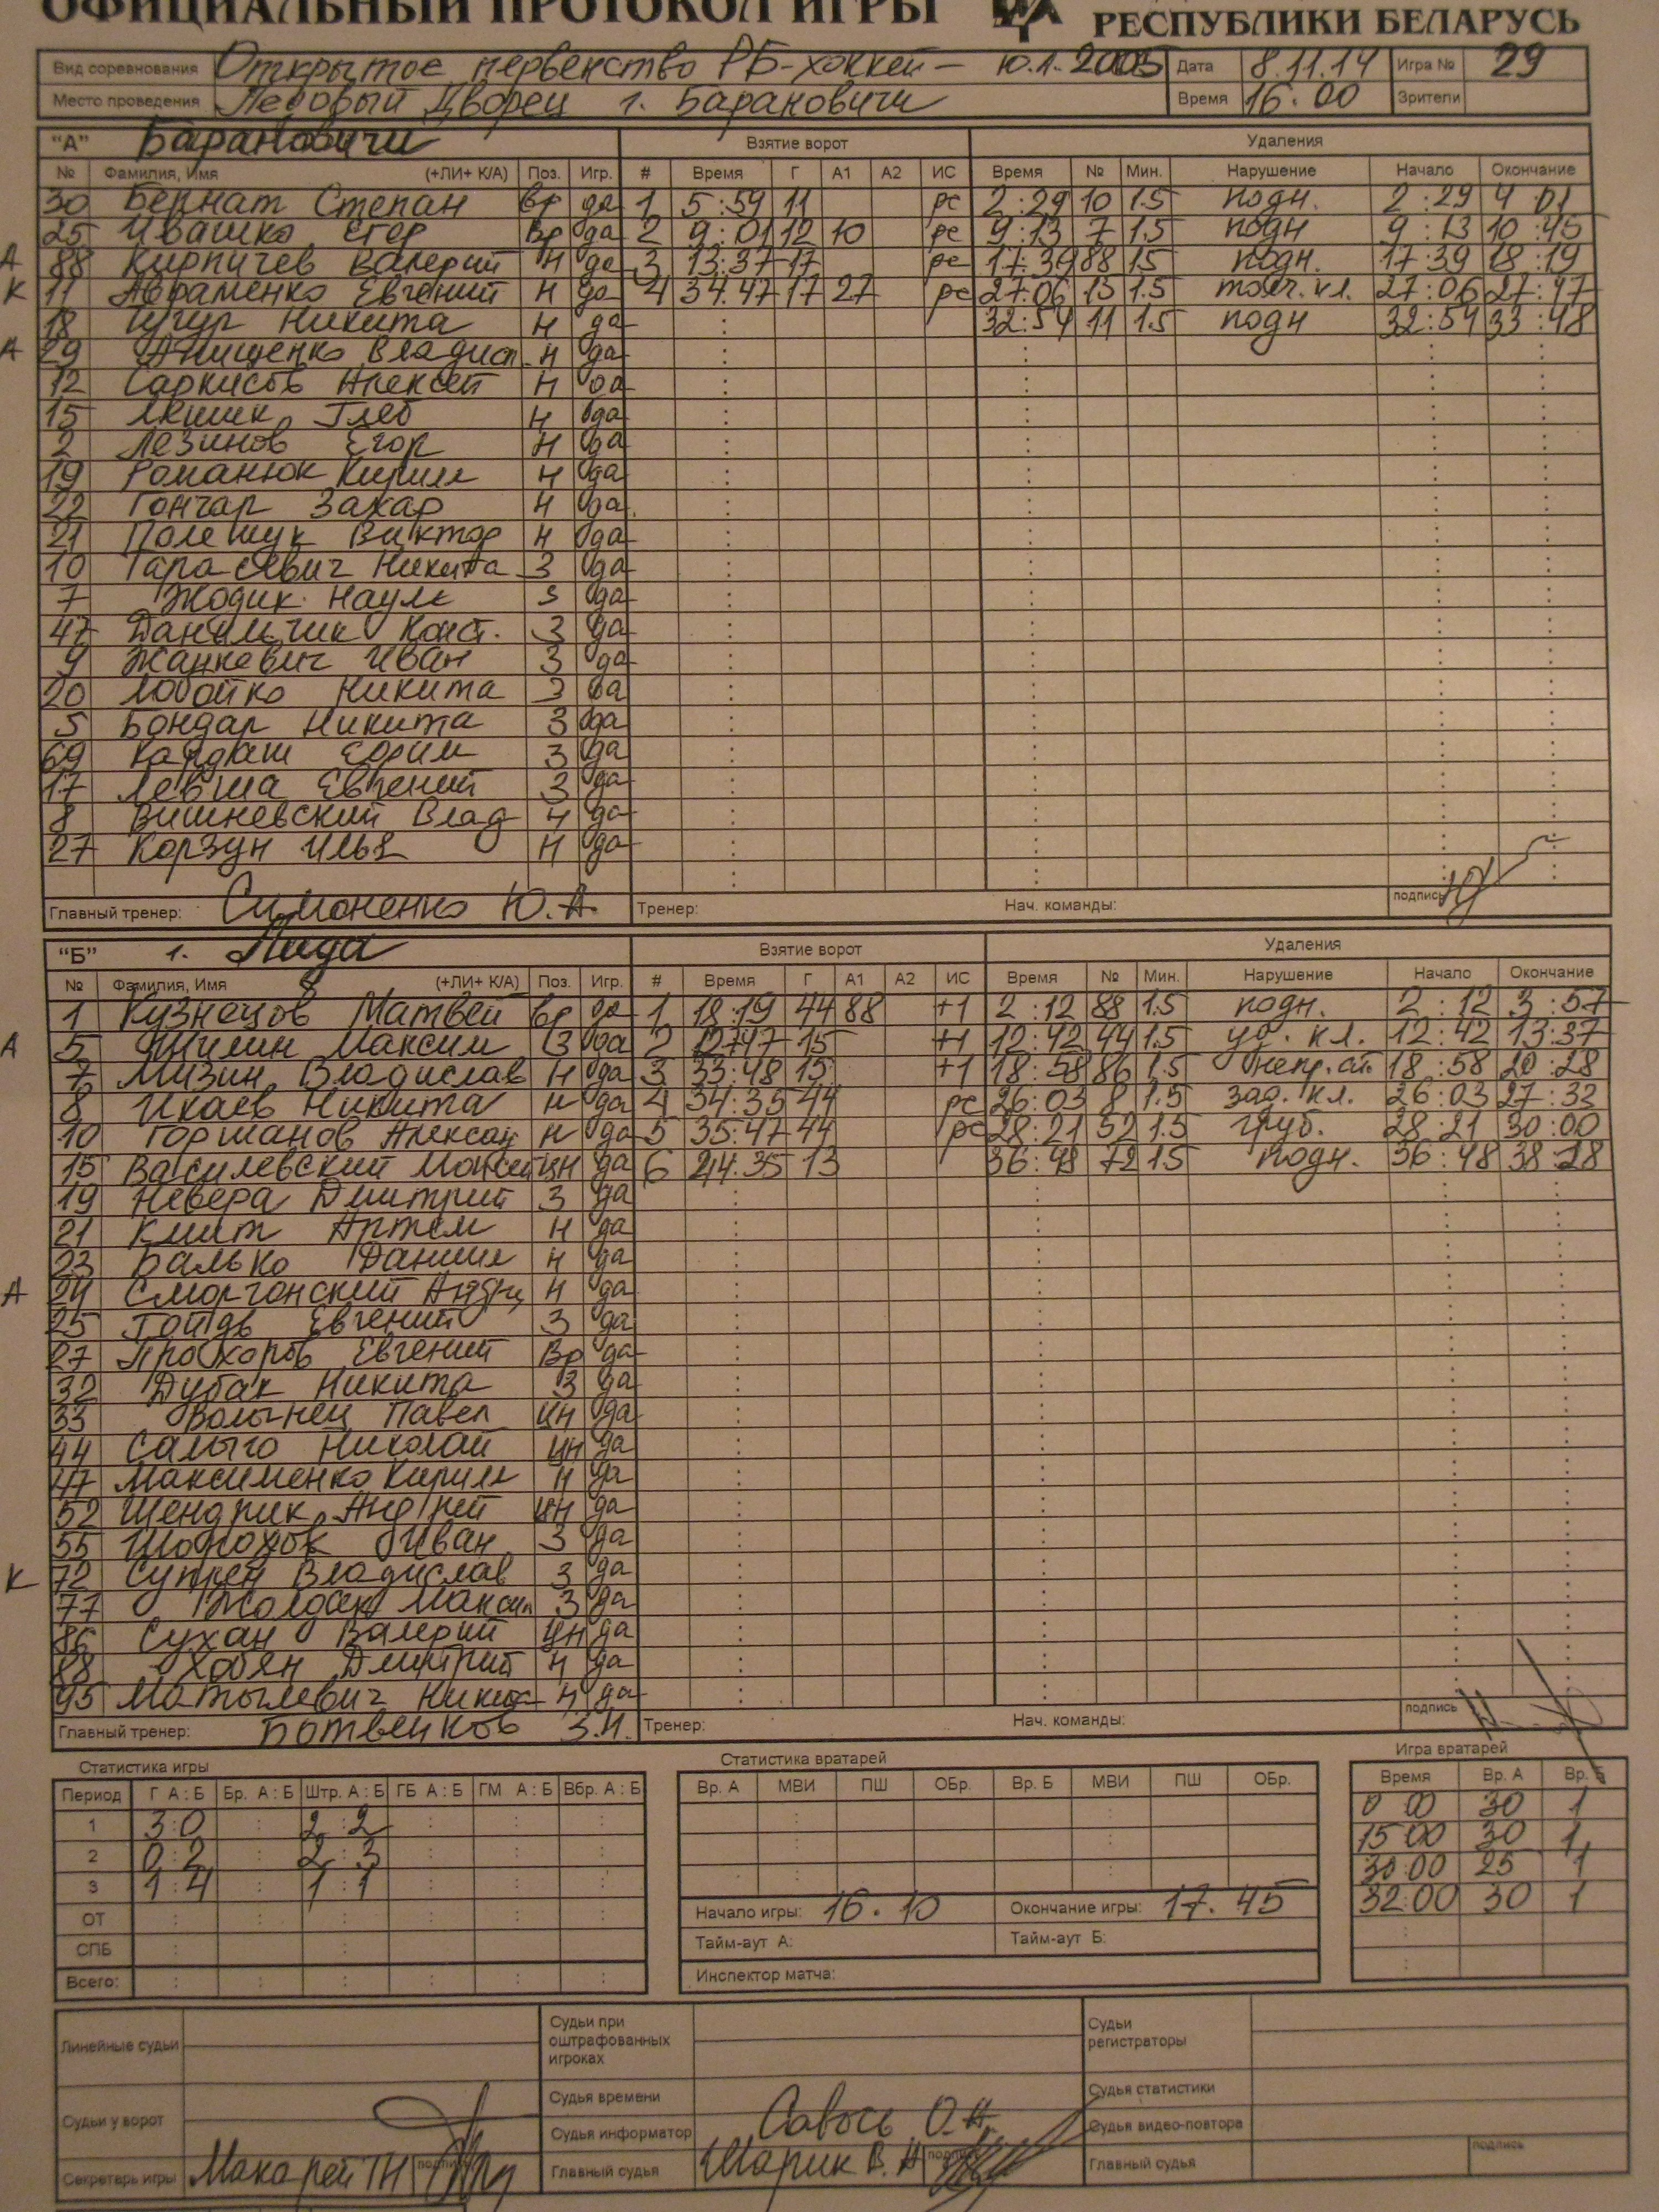 ОФИЦИАЛЬНЫЙ ПРОТОКОЛ ИГРЫ РЕСПУБЛИКИ БЕЛАРУСЬ
Вид соревнования Открытое первенство РБ-хоккей - ю.л. 2005 Дата 8.11.14 Игра № 29
Место проведения Ледовый Дворец г. Барановичи Время 16.00 Зрители
"А" Барановичи Взятие ворот Удаления
№ Фамилия, Имя (+ЛИ+ К/А) Поз. Игр. # Время Г А1 А2 ИС Время № Мин. Нарушение Начало Окончание
30 Бернат Степан Вр да 1 5:59 11 рс 2:29 10 1.5 подн. 2:29 4 01
25 Ивашко Егор Вр да 2 9:01 12 10 рс 9:13 7 1.5 подн 9:13 10:45
А 88 Кирпичев Валерий Н да 3 13:37 17 рс 17:39 88 1.5 подн. 17:39 18:19
К 11 Авраменко Евгений Н да 4 34:47 17 27 рс 27:06 15 1.5 толч. кл. 27:06 27:47
18 Чугур Никита Н да 32:54 11 1.5 подн 32:54 33:48
А 29 Анищенко Владисл. Н да
12 Саркисов Алексей Н да
15 Якшик Глеб Н да
2 Лезинов Егор Н да
19 Романюк Кирилл Н да
22 Гончар Захар Н да
21 Полещук Виктор Н да
10 Тарасевич Никита З да
7 Жодик Наум З да
47 Данильчик Конст. З да
9 Жанкевич Иван З да
20 Лобойко Никита З да
5 Бондар Никита З да
69 Кардаш Ефим З да
17 Левша Евгений З да
8 Вишневский Влад Н да
27 Корзун Илья Н да
Главный тренер: Симоненко Ю.А. Тренер: Нач. команды: подпись
"Б" г. Лида Взятие ворот Удаления
№ Фамилия, Имя (+ЛИ+ К/А) Поз. Игр. # Время Г А1 А2 ИС Время № Мин. Нарушение Начало Окончание
1 Кузнецов Матвей Вр да 1 18:19 44 88 +1 2:12 88 1.5 подн. 2:12 3:57
А 5 Шилин Максим З да 2 27:47 15 +1 12:42 44 1.5 уд. кл. 12:42 13:37
7 Мизин Владислав Н да 3 33:48 15 +1 18:58 86 1.5 непр. ат. 18:58 20:28
8 Икаев Никита Н да 4 34:35 44 рс 26:03 8 1.5 зад. кл. 26:03 27:33
10 Горшанов Алексан Н да 5 35:47 44 рс 28:21 52 1.5 груб. 28:21 30:00
15 Василевский Моисей ЦН да 6 44:35 13 36:48 72 1.5 подн. 36:48 38:28
19 Невера Дмитрий З да
21 Кмит Артем Н да
23 Балько Даниил Н да
А 24 Сморгонский Андрц Н да
25 Гойдь Евгений З да
27 Прохоров Евгений Вр да
32 Дубак Никита З да
33 Волынец Павел ЦН да
44 Салыго Николай ЦН да
47 Максименко Кирилл Н да
52 Шендрик Андрей ЦН да
55 Шорохов Иван З да
К 72 Супрен Владислав З да
77 Жолдак Максим З да
86 Сухан Валерий ЦН да
88 Хобян Дмитрий Н да
95 Матылевич Никита Н да
Главный тренер: Ботвенков З.И. Тренер: Нач. команды: подпись
Статистика игры Статистика вратарей Игра вратарей
Период Г А:Б Бр. А:Б Штр. А:Б ГБ А:Б ГМ А:Б Вбр. А:Б Вр. А МВИ ПШ ОБр. Вр. Б МВИ ПШ ОБр. Время Вр. А Вр. Б
1 3:0 2:2 0 00 30 1
2 0:2 2:3 15 00 30 1
3 1:4 1:1 30:00 25 1
ОТ Начало игры: 16.10 Окончание игры: 17.45 32:00 30 1
СПБ Тайм-аут А: Тайм-аут Б:
Всего: Инспектор матча:
Линейные судьи Судьи при оштрафованных игроках Судьи регистраторы
Судья времени Судья статистики
Судьи у ворот Судья информатор Савось О.Н. Судья видео-повтора
Секретарь игры Макарей ТН подпись Главный судья Шарик В.Н подпись Главный судья подпись